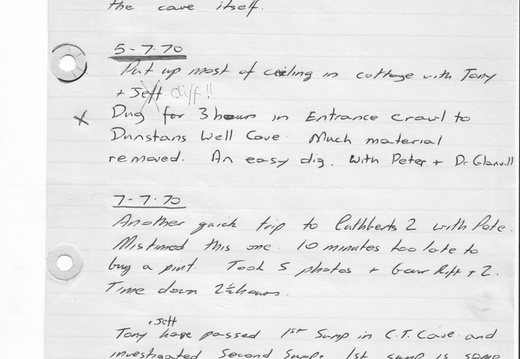 the cave itself.
5-7-70
Put up most of ceiling in cottage with Tony
+ Jeff diff!!
X Dug for 3 hours in Entrance Crawl to
Dunstans Well Cave. Much material
removed. An easy dig. With Peter + Dr Glanvill
7-7-70
Another quick trip to Cuthberts 2 with Pete.
Mistimed this one. 10 minutes too late to
buy a pint. Took 5 photos + Gour Rift + 2.
Time down 2½ hours.
+ Jeff
Tony have passed 1st Sump in C.T. Cave and
investigated Second Sump. 1st sump is some